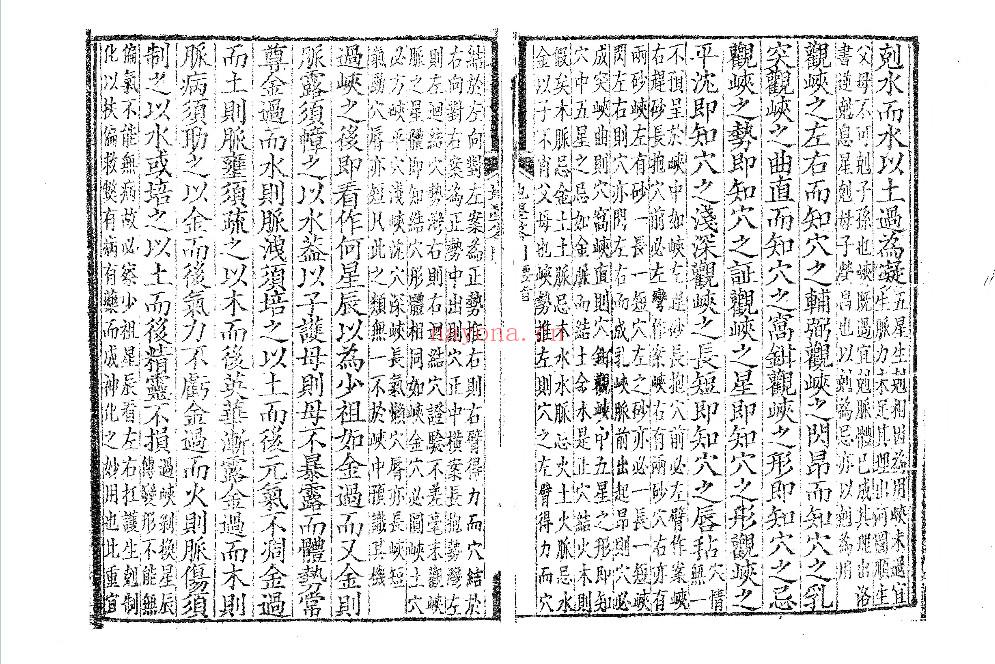 剋水而水以土過為凝
五星生剋相因益用峽未過宜
生脈力未足其理出河圖順生
父母不可剋子孫也峽既過宜脈體已成其理出洛
書適剋息星剋母子營昌也以剋為用
觀峽之左右而知穴之輔弼觀峽之閃昂而知穴之乳
突觀峽之曲直而知穴之窩鉗觀峽之形即知穴之忌
觀峽之勢即知穴之証觀峽之星即知穴之形觀峽之
平沈即知穴之淺深觀峽之長短即知穴之唇毡
穴情無一
不預呈於峽中如峽左邊砂長抱穴前必左臂作案峽
右邊砂長抱穴前必左彎作案峽右有兩砂穴右亦有
兩砂峽左有砂一長一短穴左之砂亦必一長一短峽
閃左右則穴必閃左右而成乳峽脈前出起昂則穴必
成突峽曲則穴窩峽直則穴鉗觀峽中五星之形即知
穴中五星之忌如金脈忌火而結土金水是正穴結火木
假矣木脈忌金土土脈忌木水水脈忌火土火脈忌水
金以子不肯父母也峽勢推左則穴之左臂得力而穴
結於左向對左案為正勢推右則右臂得力而穴結於
右向對右案為正勢中出則穴正中橫案長抱勢彎左
則左迴結穴勢灣右則右迴結穴證驗不爽毫末觀峽
之星體即知結穴之形體相同如峽金穴必圓峽土穴
必方峽平穴淺峽沈穴深峽長氣穴唇亦長峽短
氣動穴唇亦短凡此之類無一不於峽中預識其機
過峽之後即看作何星辰以為少祖如金過而又金則
脈露須幛之以水蓋以子護母則母不暴露而體勢常
尊金過而水則脈洩須培之以土而後元氣不凋金過
而土則脈壅須疏之以木而後英華漸露金過而木則
脈病須助之以金而後氣力不虧金過而火則脈傷須
制之以水或培之以土而後精靈不損
過峽剝換星辰
傳變形不能無
偏氣不能無病故必察少祖星辰看左右扛護生剋制
化以扶偏救弊有病有藥而成神化之妙用也此重宜
nayona.cn